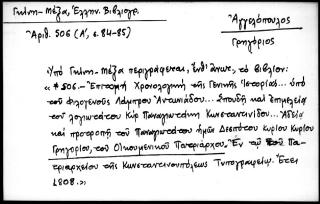 Γκίνη-Μέξα, Ἑλλην. Βιβλιογρ.
Ἀριθ. 506 (Α', σ. 84-85)
Ἀγγελόπουλος
Γρηγόριος
Ὑπὸ Γκίνη-Μέξα περιγράφεται, ἐνθ' ἄνωτ., τὸ βιβλίον:
« *506.- Ἐπιτομὴ Χρονολογικὴ τῆς Γενικῆς Ἱστορίας... ὑπὸ
τοῦ φιλογενοῦς Λάμπρου Ἀντωνιάδου... Σπουδῇ καὶ ἐπιμελείᾳ
τοῦ λογιωτάτου Κὺρ Παναγιωτάκη Κωνσταντινίδου... Ἀδείᾳ
καὶ προτροπῇ τοῦ Παναγιωτάτου ἡμῶν Δεσπότου Κυρίου Κυρίου
Γρηγορίου, τοῦ Οἰκουμενικοῦ Πατριάρχου. Ἐν τῷ τοῦ Πα-
τριαρχείου τῆς Κωνσταντινουπόλεως Τυπογραφείῳ. Ἔτει
1808.»